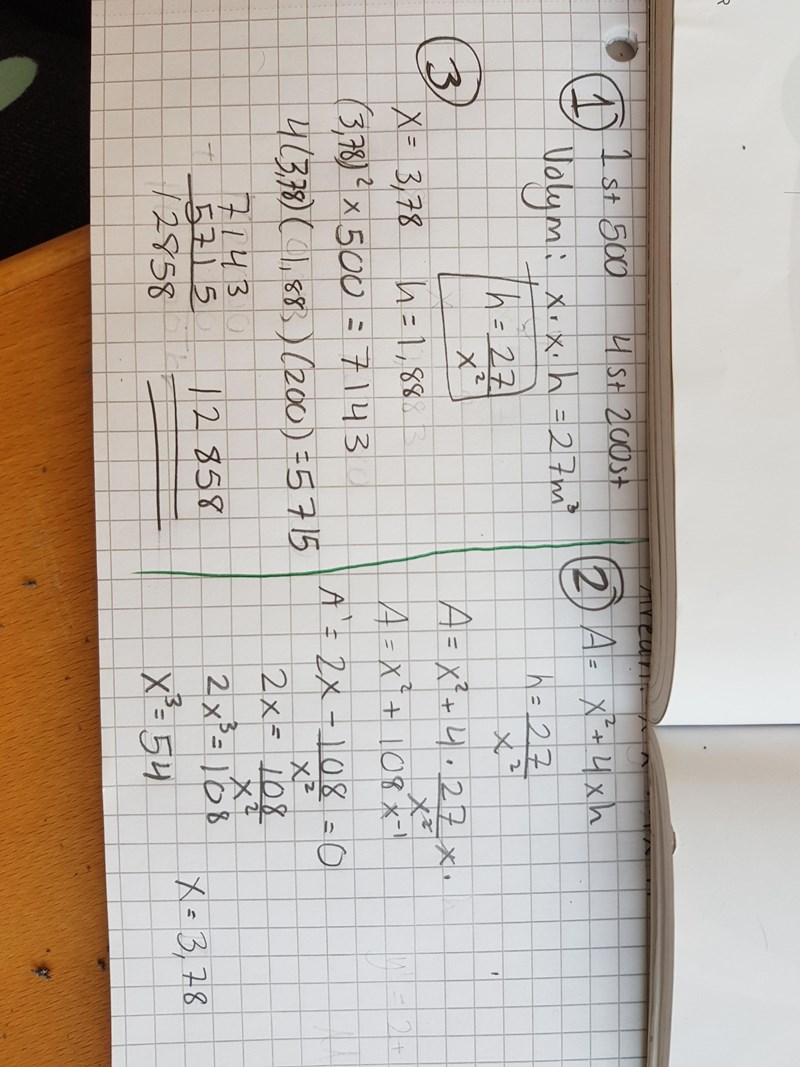 ① 1 st 500 4 st 200st
Volym: x · x · h = 27m³
h = 27/x²
③
x = 3,78 h = 1,88
(3,78)² × 500 = 7143
4(3,78)(1,88)(200) = 5715
7143
+ 5715
12858
12858
② A = x² + 4xh
h = 27/x²
A = x² + 4 · 27/x² x.
A = x² + 108x⁻¹
A' = 2x - 108/x² = 0
2x = 108/x²
2x³ = 108
x³ = 54
x = 3,78